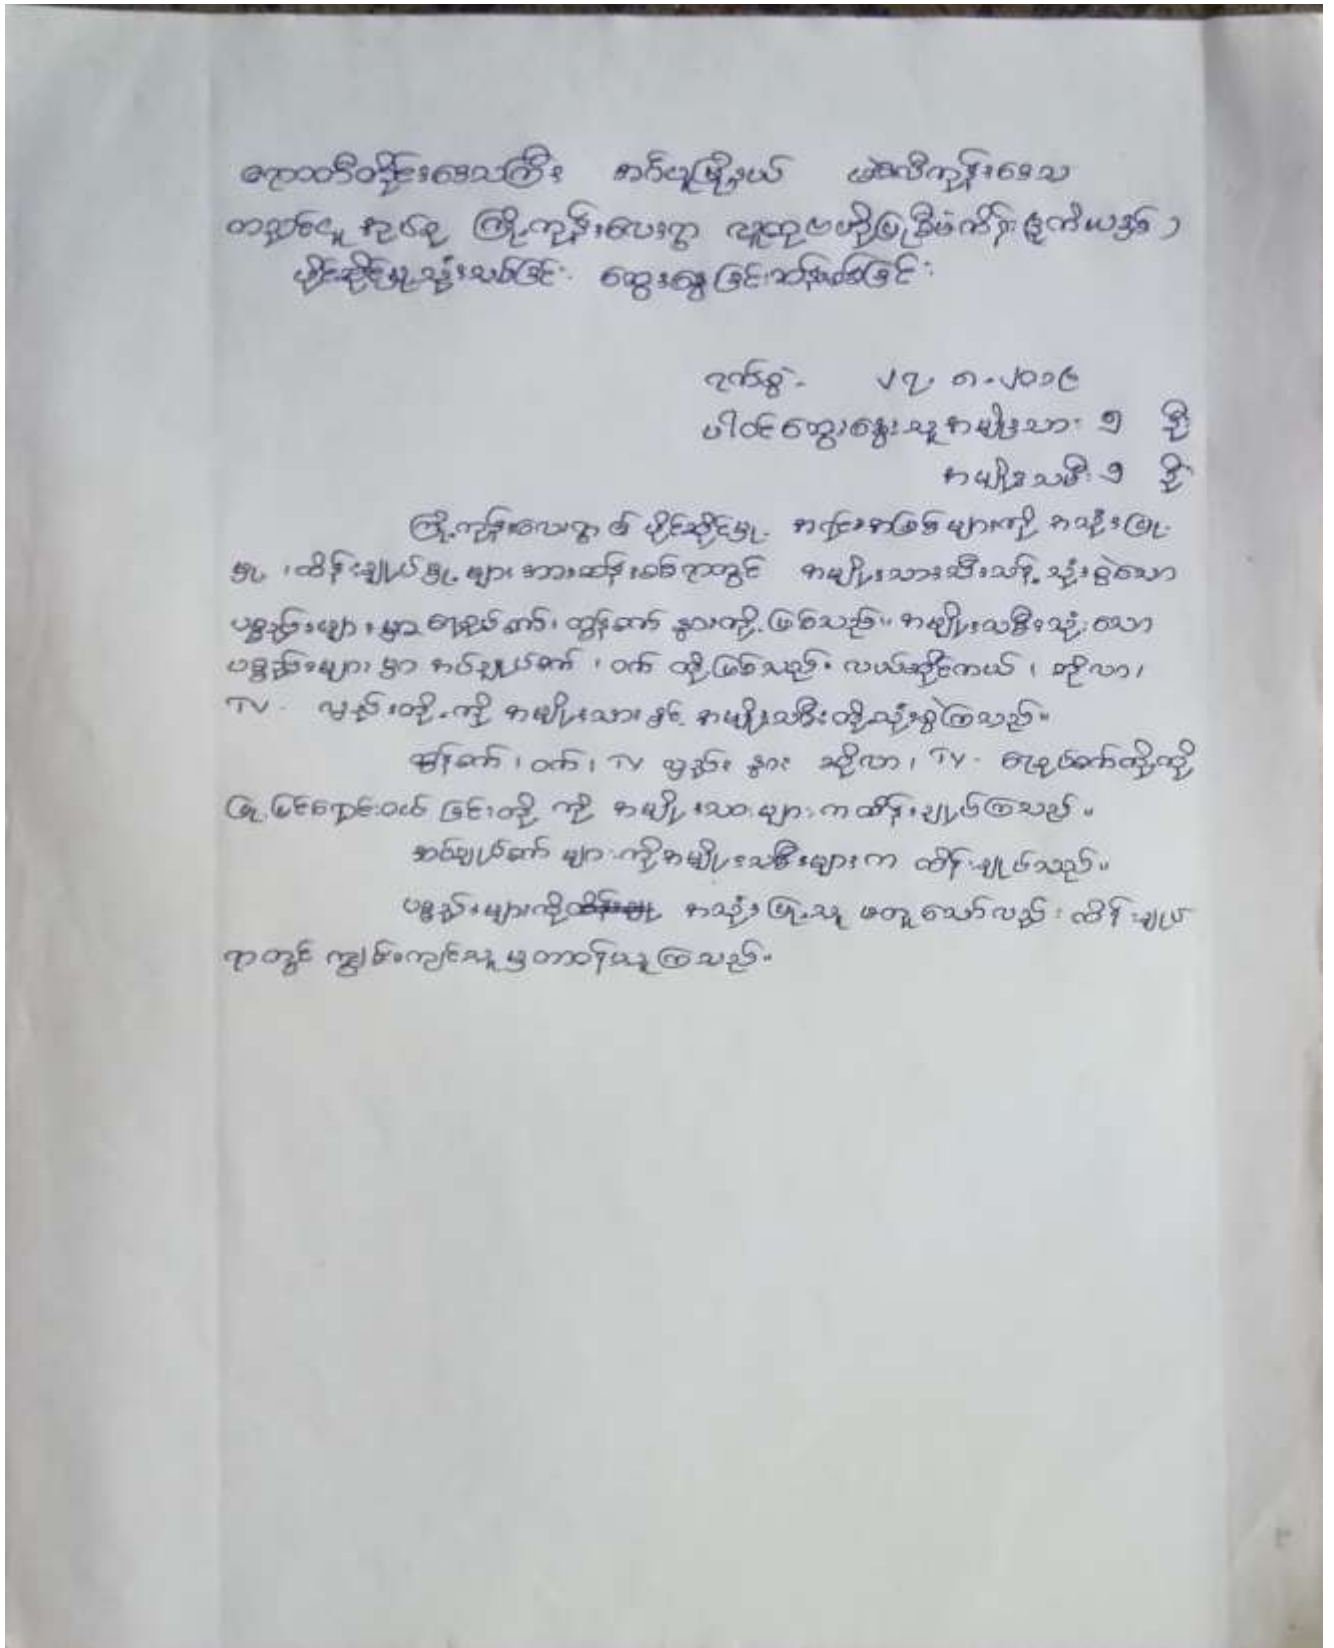 ဧရာဝတီတိုင်းဒေသကြီး အင်ပူမြို့နယ် ဖဲစလီကုန်းဒေသ
အုပ်စု ကြို့ကုန်းလေးရွာ လူထုဗဟိုပြုစီမံကိန်း
ပိုင်ဆိုင်မှုသုံးသပ်ခြင်း ဆွေးနွေးခြင်းဆန်းစစ်ခြင်း
ရက်စွဲ- ၂၇. ၈-၂၀၁၉
ပါဝင်ဆွေးနွေးသူအမျိုးသား ၅ ဦး
အမျိုးသမီး ၅ ဦး
ကြို့ကုန်းလေးရွာ ၏ ပိုင်ဆိုင်မှု အရင်းအမြစ်များကို အသုံးပြု
မှု ၊ ထိန်းချုပ်မှု များအားဆန်းစစ်ရာတွင် အမျိုးသားသီးသန့် သုံးစွဲသော
ပစ္စည်းများမှာ ရေစုပ်စက်၊ ထွန်စက် နွားတို့ ဖြစ်သည်။ အမျိုးသမီးသုံးသော
ပစ္စည်းများမှာ အပ်ချုပ်စက် ၊ ဝက် တို့ဖြစ်သည်။ လယ်ဆိုင်ကယ် ၊ ဆိုလာ၊
TV - လှည်းတို့ ကို အမျိုးသားနှင့် အမျိုးသမီးတို့သုံးစွဲကြသည်။
ထွန်စက် ၊ ဝက် ၊ TV လှည်း နွား ဆိုလာ ၊ TV - ရေစုပ်စက်တို့ကို
ပြုပြင်ရောင်းဝယ် ခြင်းတို့ ကို အမျိုးသားများကထိန်းချုပ်ကြသည်။
အပ်ချုပ်စက် များကိုအမျိုးသမီးများက ထိန်းချုပ်သည်။
ပစ္စည်းများကို အသုံးပြုသူ မတူသော်လည်း ထိန်းချုပ်
ရာတွင် ကျွမ်းကျင်သူမှတာဝန်ယူကြသည်။